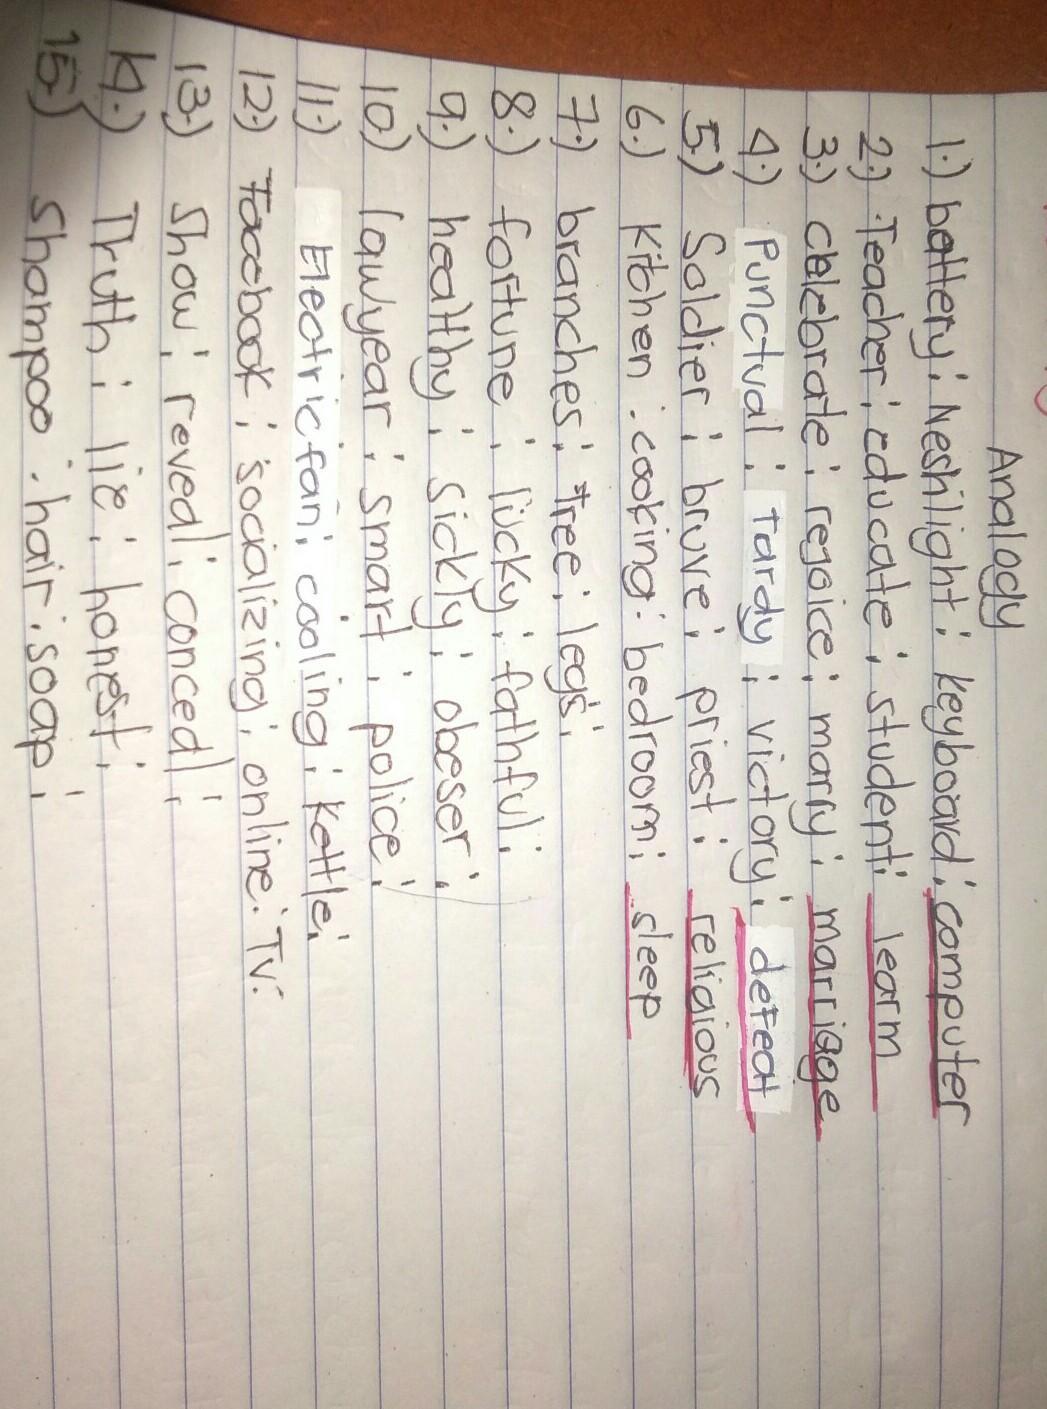 Analogy
1.) battery : Neshlight : keyboard : computer
2.) Teacher : educate : student : learm
3.) celebrate : regoice : marry : marriage
4.) Punctual : tardy : victory : defeat
5.) Soldier : bruve : priest : religious
6.) Kitchen : cooking : bedroom : sleep
7.) branches : tree : legs :
8.) fortune : lucky : fathful :
9.) healthy : sickly : obeser :
10) lawyear : smart : police :
11.) Electricfan : cooling : kettle :
12.) Facebook : socializing : online : TV :
13.) Show : reveal : conceal :
14.) Truth : lie : honest :
15.) Shampoo : hair : soap :